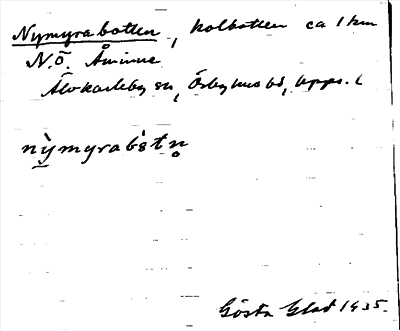 Nymyrabotten, kolbotten ca 1 km
N.Ö. Åminne
Älvkarleby sn, Örbyhus hd, Upps. l
nỳmyrabɔ̀tn̥
Gösta Glad 1935.